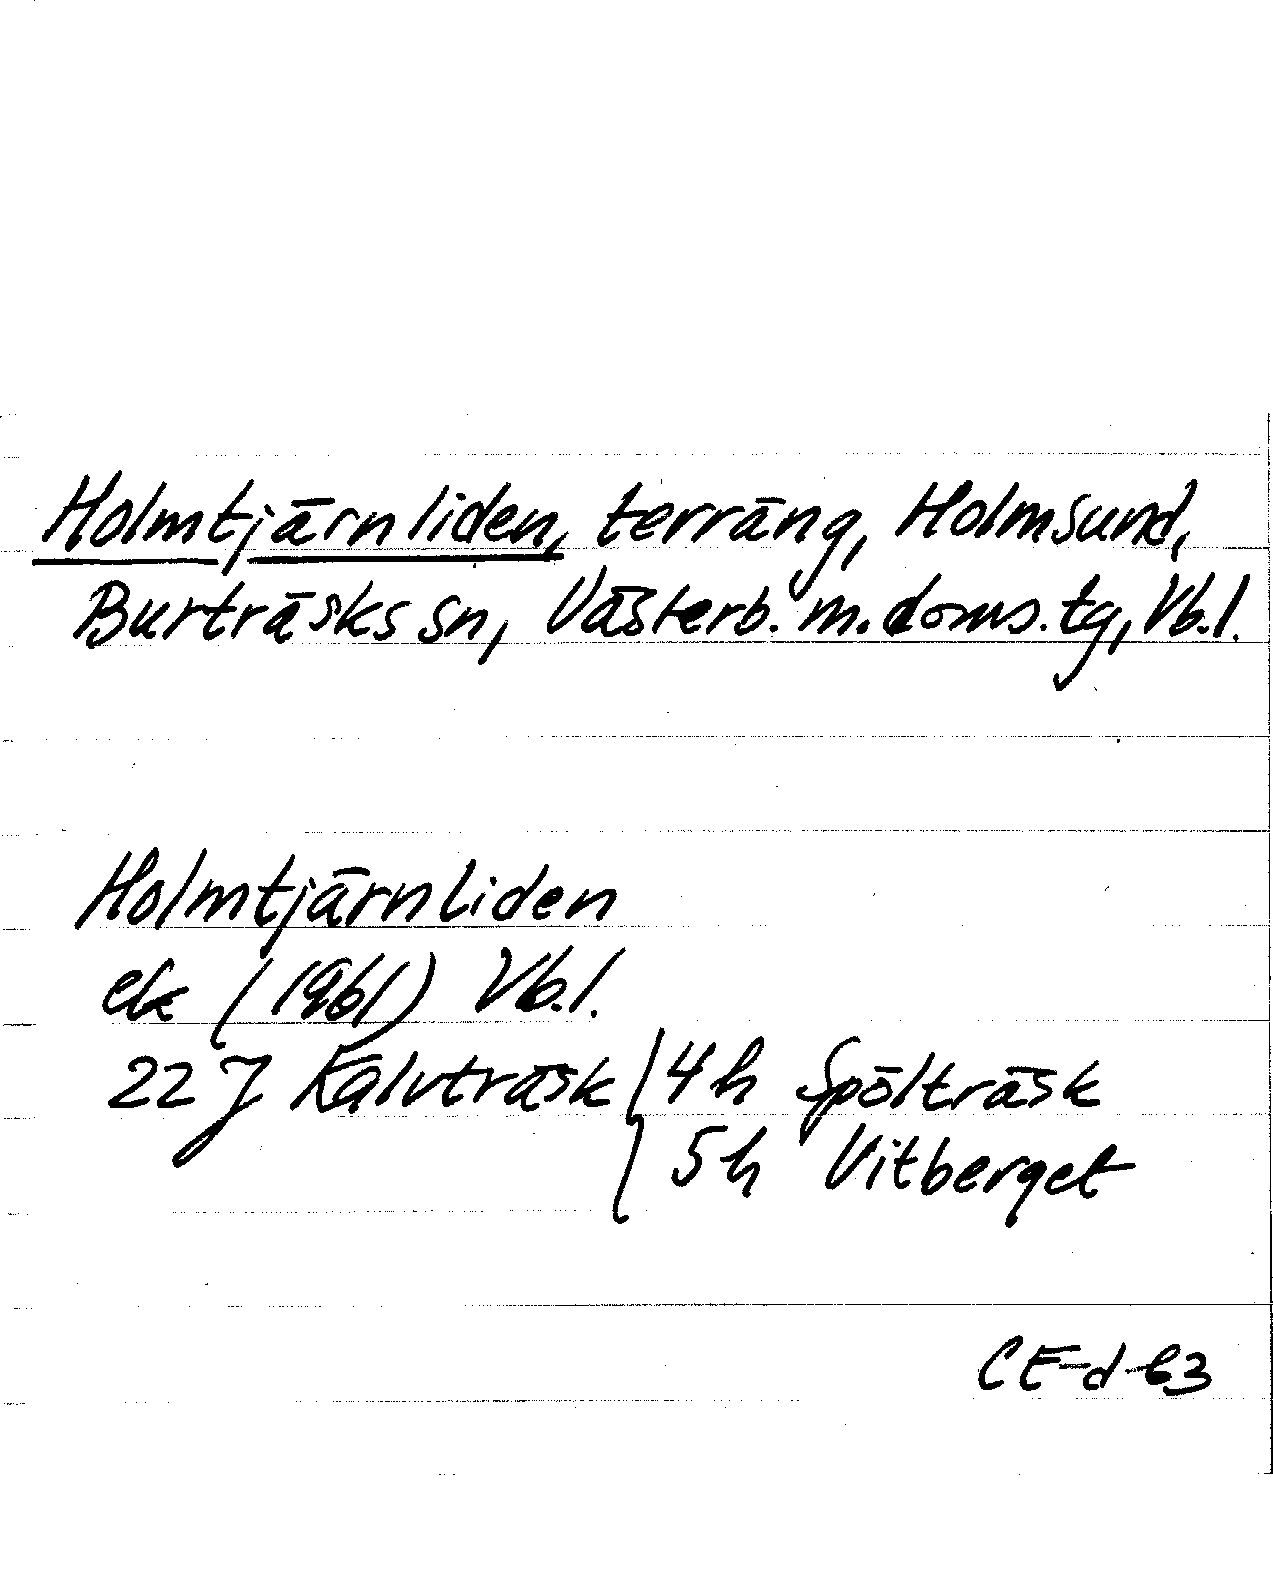 Holmtjärnliden, terräng, Holmsund,
Burträsks sn, Västerb. m. doms. tg, Vb. l.
Holmtjärnliden
ek (1961) Vb. l.
22 J Kalvträsk { 4 h Spölträsk
5 h Vitberget
CE-d-63